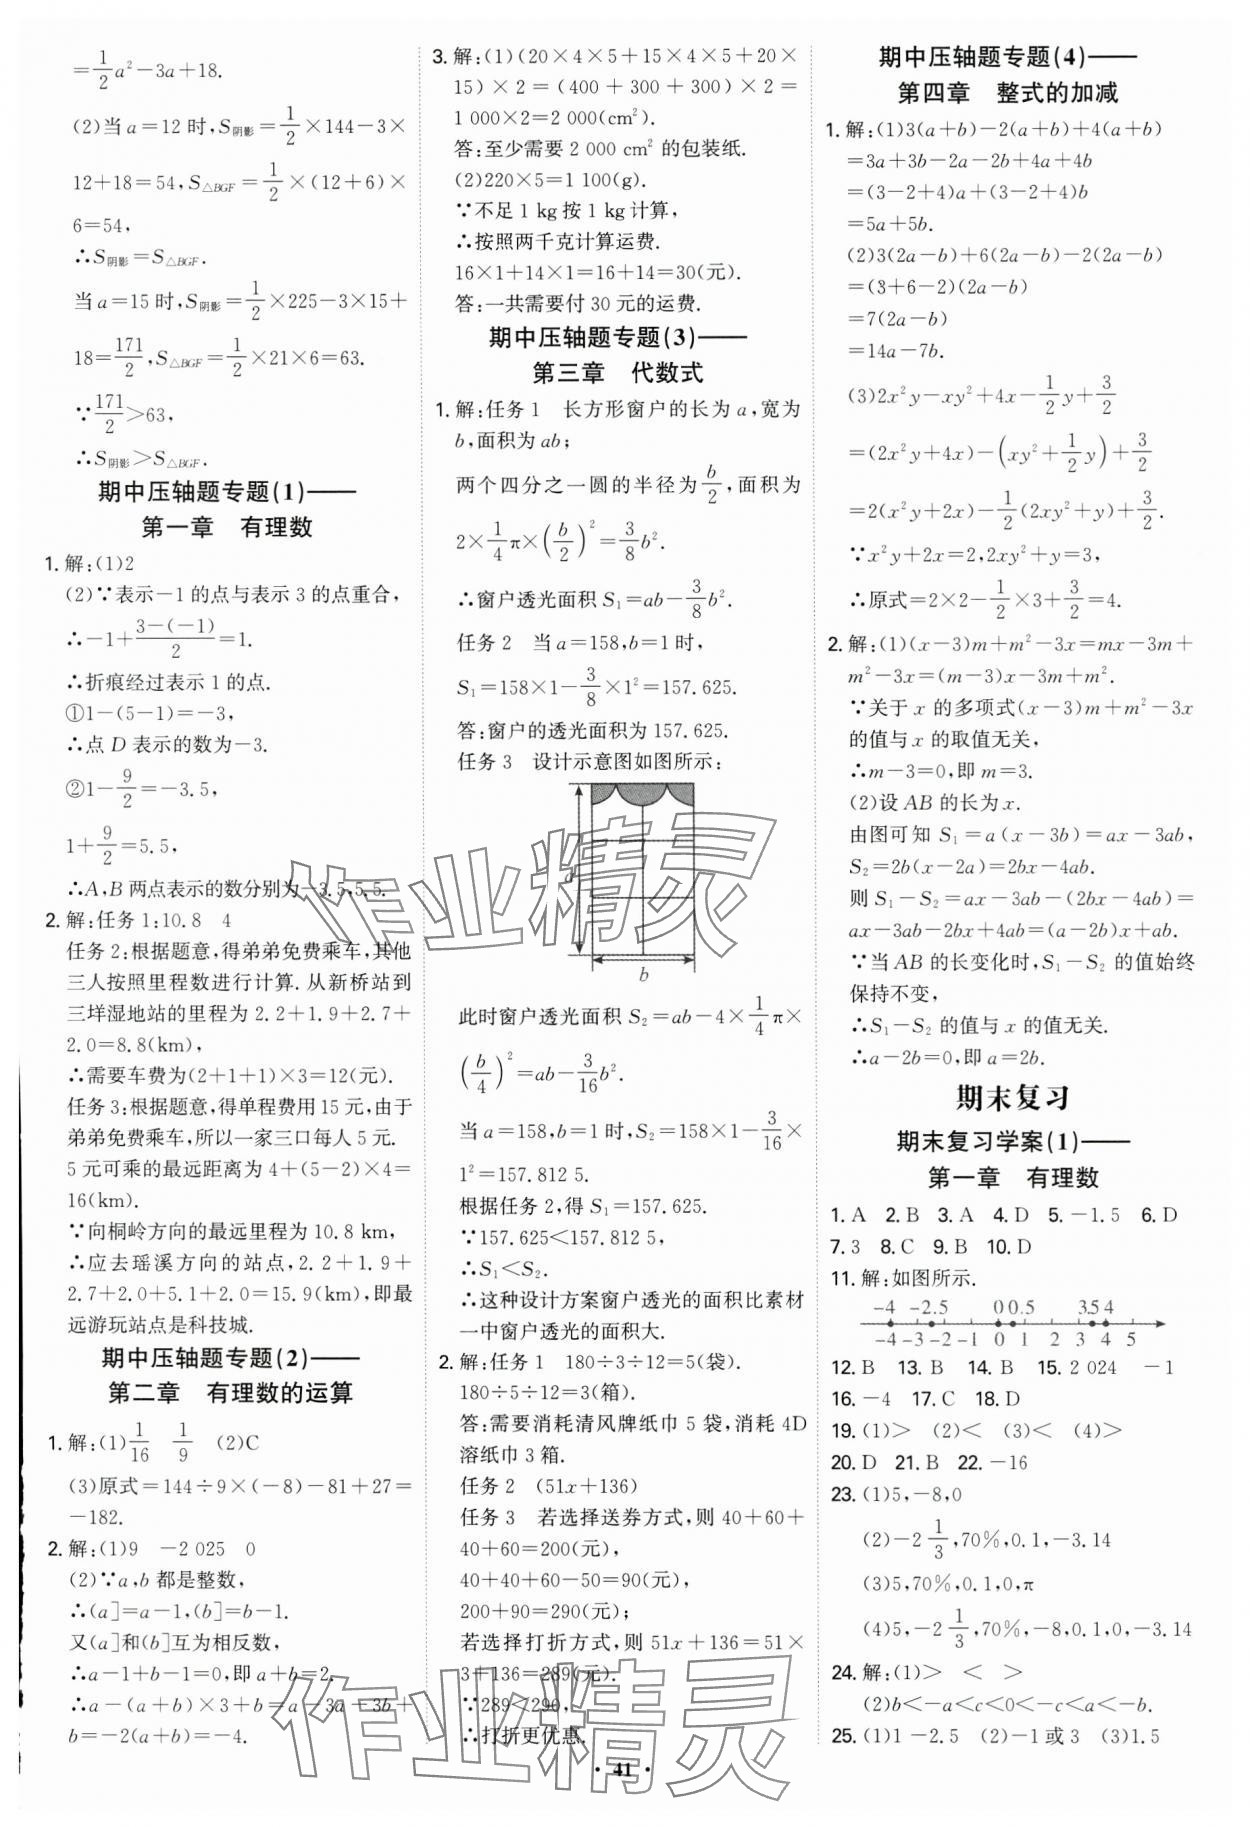 =1/2a²-3a+18.
(2)当a=12时,S阴影=1/2×144-3×
12+18=54,S△BGF=1/2×(12+6)×
6=54,
∴S阴影=S△BGF.
当a=15时,S阴影=1/2×225-3×15+
18=171/2,S△BGF=1/2×21×6=63.
∵171/2>63,
∴S阴影>S△BGF.
期中压轴题专题(1)——
第一章 有理数
1. 解:(1)2
(2)∵表示-1的点与表示3的点重合,
∴-1+(3-(-1))/2=1.
∴折痕经过表示1的点.
①1-(5-1)=-3,
∴点D表示的数为-3.
②1-9/2=-3.5,
1+9/2=5.5,
∴A,B两点表示的数分别为-3.5,5.5.
2. 解:任务1:10.8 4
任务2:根据题意,得弟弟免费乘车,其他
三人按照里程数进行计算.从新桥站到
三垟湿地站的里程为2.2+1.9+2.7+
2.0=8.8(km),
∴需要车费为(2+1+1)×3=12(元).
任务3:根据题意,得单程费用15元,由于
弟弟免费乘车,所以一家三口每人5元.
5元可乘的最远距离为4+(5-2)×4=
16(km).
∵向桐岭方向的最远里程为10.8 km,
∴应去瑶溪方向的站点,2.2+1.9+
2.7+2.0+5.1+2.0=15.9(km),即最
远游玩站点是科技城.
期中压轴题专题(2)——
第二章 有理数的运算
1. 解:(1)1/16 1/9 (2)C
(3)原式=144÷9×(-8)-81+27=
-182.
2. 解:(1)9 -2 025 0
(2)∵a,b都是整数,
∴(a]=a-1,(b]=b-1.
又(a]和(b]互为相反数,
∴a-1+b-1=0,即a+b=2.
∴a-(a+b)×3+b=a-3a-3b+
b=-2(a+b)=-4.
3. 解:(1)(20×4×5+15×4×5+20×
15)×2=(400+300+300)×2=
1 000×2=2 000(cm²).
答:至少需要2 000 cm²的包装纸.
(2)220×5=1 100(g).
∵不足1 kg按1 kg计算,
∴按照两千克计算运费.
16×1+14×1=16+14=30(元).
答:一共需要付30元的运费.
期中压轴题专题(3)——
第三章 代数式
1. 解:任务1 长方形窗户的长为a,宽为
b,面积为ab;
两个四分之一圆的半径为b/2,面积为
2×1/4π×(b/2)²=3/8b².
∴窗户透光面积S₁=ab-3/8b².
任务2 当a=158,b=1时,
S₁=158×1-3/8×1²=157.625.
答:窗户的透光面积为157.625.
任务3 设计示意图如图所示:
a
b
此时窗户透光面积S₂=ab-4×1/4π×
(b/4)²=ab-3/16b².
当a=158,b=1时,S₂=158×1-3/16×
1²=157.812 5.
根据任务2,得S₁=157.625.
∵157.625<157.812 5,
∴S₁<S₂.
∴这种设计方案窗户透光的面积比素材
一中窗户透光的面积大.
2. 解:任务1 180÷3÷12=5(袋).
180÷5÷12=3(箱).
答:需要消耗清风牌纸巾5袋,消耗4D
溶纸巾3箱.
任务2 (51x+136)
任务3 若选择送券方式,则40+60+
40+60=200(元),
40+40+60-50=90(元),
200+90=290(元);
若选择打折方式,则51x+136=51×
3+136=289(元).
∵289<290,
∴打折更优惠.
期中压轴题专题(4)——
第四章 整式的加减
1. 解:(1)3(a+b)-2(a+b)+4(a+b)
=3a+3b-2a-2b+4a+4b
=(3-2+4)a+(3-2+4)b
=5a+5b.
(2)3(2a-b)+6(2a-b)-2(2a-b)
=(3+6-2)(2a-b)
=7(2a-b)
=14a-7b.
(3)2x²y-xy²+4x-1/2y+3/2
=(2x²y+4x)-(xy²+1/2y)+3/2
=2(x²y+2x)-1/2(2xy²+y)+3/2.
∵x²y+2x=2,2xy²+y=3,
∴原式=2×2-1/2×3+3/2=4.
2. 解:(1)(x-3)m+m²-3x=mx-3m+
m²-3x=(m-3)x-3m+m².
∵关于x的多项式(x-3)m+m²-3x
的值与x的取值无关,
∴m-3=0,即m=3.
(2)设AB的长为x.
由图可知S₁=a(x-3b)=ax-3ab,
S₂=2b(x-2a)=2bx-4ab.
则S₁-S₂=ax-3ab-(2bx-4ab)=
ax-3ab-2bx+4ab=(a-2b)x+ab.
∵当AB的长变化时,S₁-S₂的值始终
保持不变,
∴S₁-S₂的值与x的值无关.
∴a-2b=0,即a=2b.
期末复习
期末复习学案(1)——
第一章 有理数
1. A 2. B 3. A 4. D 5. -1.5 6. D
7. 3 8. C 9. B 10. D
11. 解:如图所示.
-4 -2.5 0 0.5 3.5 4
-4 -3 -2 -1 0 1 2 3 4 5
12. B 13. B 14. B 15. 2 024 -1
16. -4 17. C 18. D
19. (1)> (2)< (3)< (4)>
20. D 21. B 22. -16
23. (1)5,-8,0
(2)-2 1/3,70%,0.1,-3.14
(3)5,70%,0.1,0,π
(4)5,-2 1/3,70%,-8,0.1,0,-3.14
24. 解:(1)> < >
(2)b<-a<c<0<-c<a<-b.
25. (1)1 -2.5 (2)-1或3 (3)1.5
· 41 ·
作业精灵
作业精灵